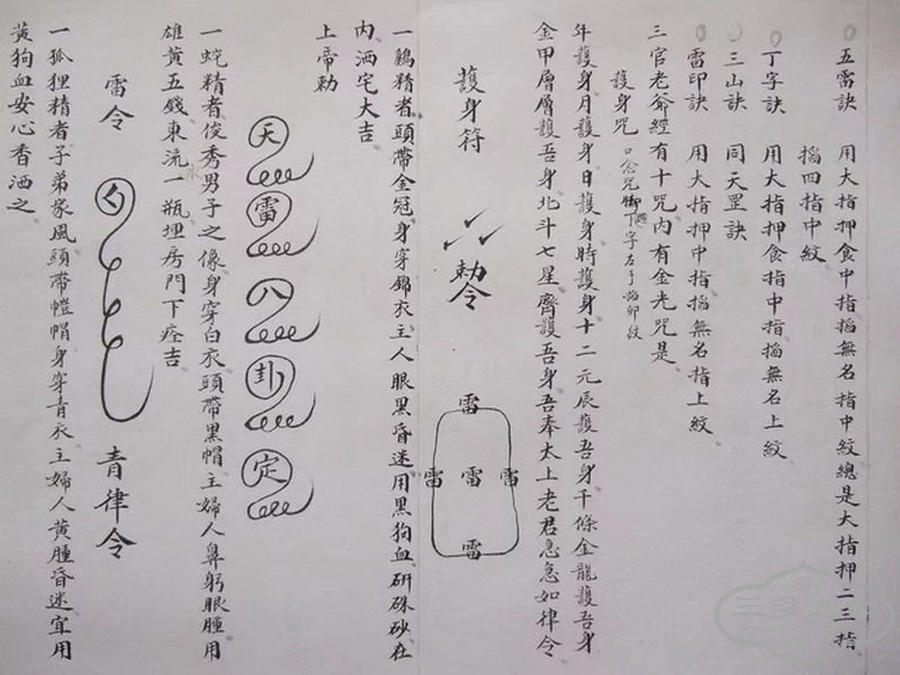 五雷訣　用大指押食中指搯無名指中紋總是大指押二三指
搯四指中紋
丁字訣　用大指押食指中指搯無名上紋
三山訣　同天罡訣
雷印訣　用大指押中指搯無名指上紋
三官老爺經有十咒内有金光咒是
護身咒　口念咒脚丁字左手搯卯紋
年護身月護身日護身時護身十二元辰護吾身千條金龍護吾身
金甲層層護吾身北斗七星齊護吾身吾奉太上老君急急如律令
護身符
勅令
雷
雷 雷 雷
雷
一鷄精者頭帶金冠身穿錦衣主人眼黑昏迷用黑狗血研硃砂在
内洒宅大吉
上帝勅
天雷八卦定
一蛇精者俊秀男子之像身穿白衣頭帶黑帽主婦人鼻躬眼腫用
雄黄五錢東流水一瓶埋房門下痊吉
雷令
青律令
一狐狸精者子弟家風頭帶帽身穿青衣主婦人黄腫昏迷宜用
黄狗血安心香洒之